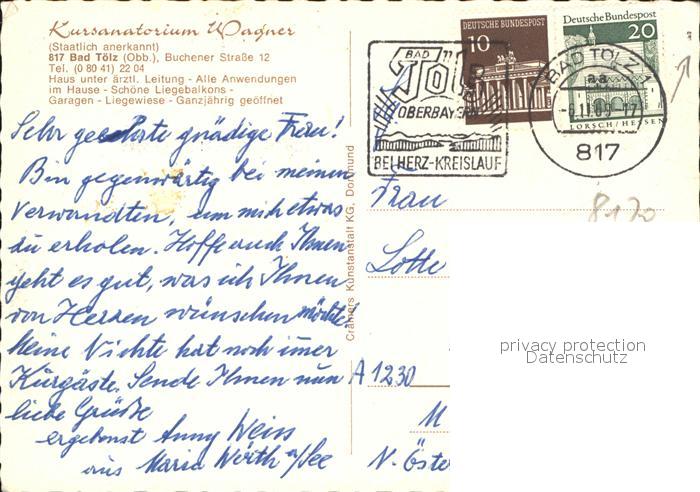 Kursanatorium Wagner
(Staatlich anerkannt)
817 Bad Tölz (Obb.), Buchener Straße 12
Tel. (0 80 41) 22 04
Haus unter ärztl. Leitung - Alle Anwendungen
im Hause - Schöne Liegebalkons -
Garagen - Liegewiese - Ganzjährig geöffnet
Sehr geehrte gnädige Frau!
Bin gegenwärtig bei meinen
Verwandten, um mich etwas
zu erholen. Hoffe auch Ihnen
geht es gut, was ich Ihnen
von Herzen wünschen möchte
Meine Nichte hat noch imer
Kurgäste. Sende Ihnen nun
liebe Grüße
ergebenst Anny Weiss
aus Maria Wörth a/See
Cramers Kunstanstalt KG, Dortmund
BAD
Tölz
OBERBAYERN
BEI HERZ-KREISLAUF
DEUTSCHE BUNDESPOST
10
Deutsche Bundespost
20
LORSCH/HESSEN
BAD TÖLZ 1
aa
817
8170
Frau
Lotte
A 1230
M
N. Öste
privacy protection
Datenschutz